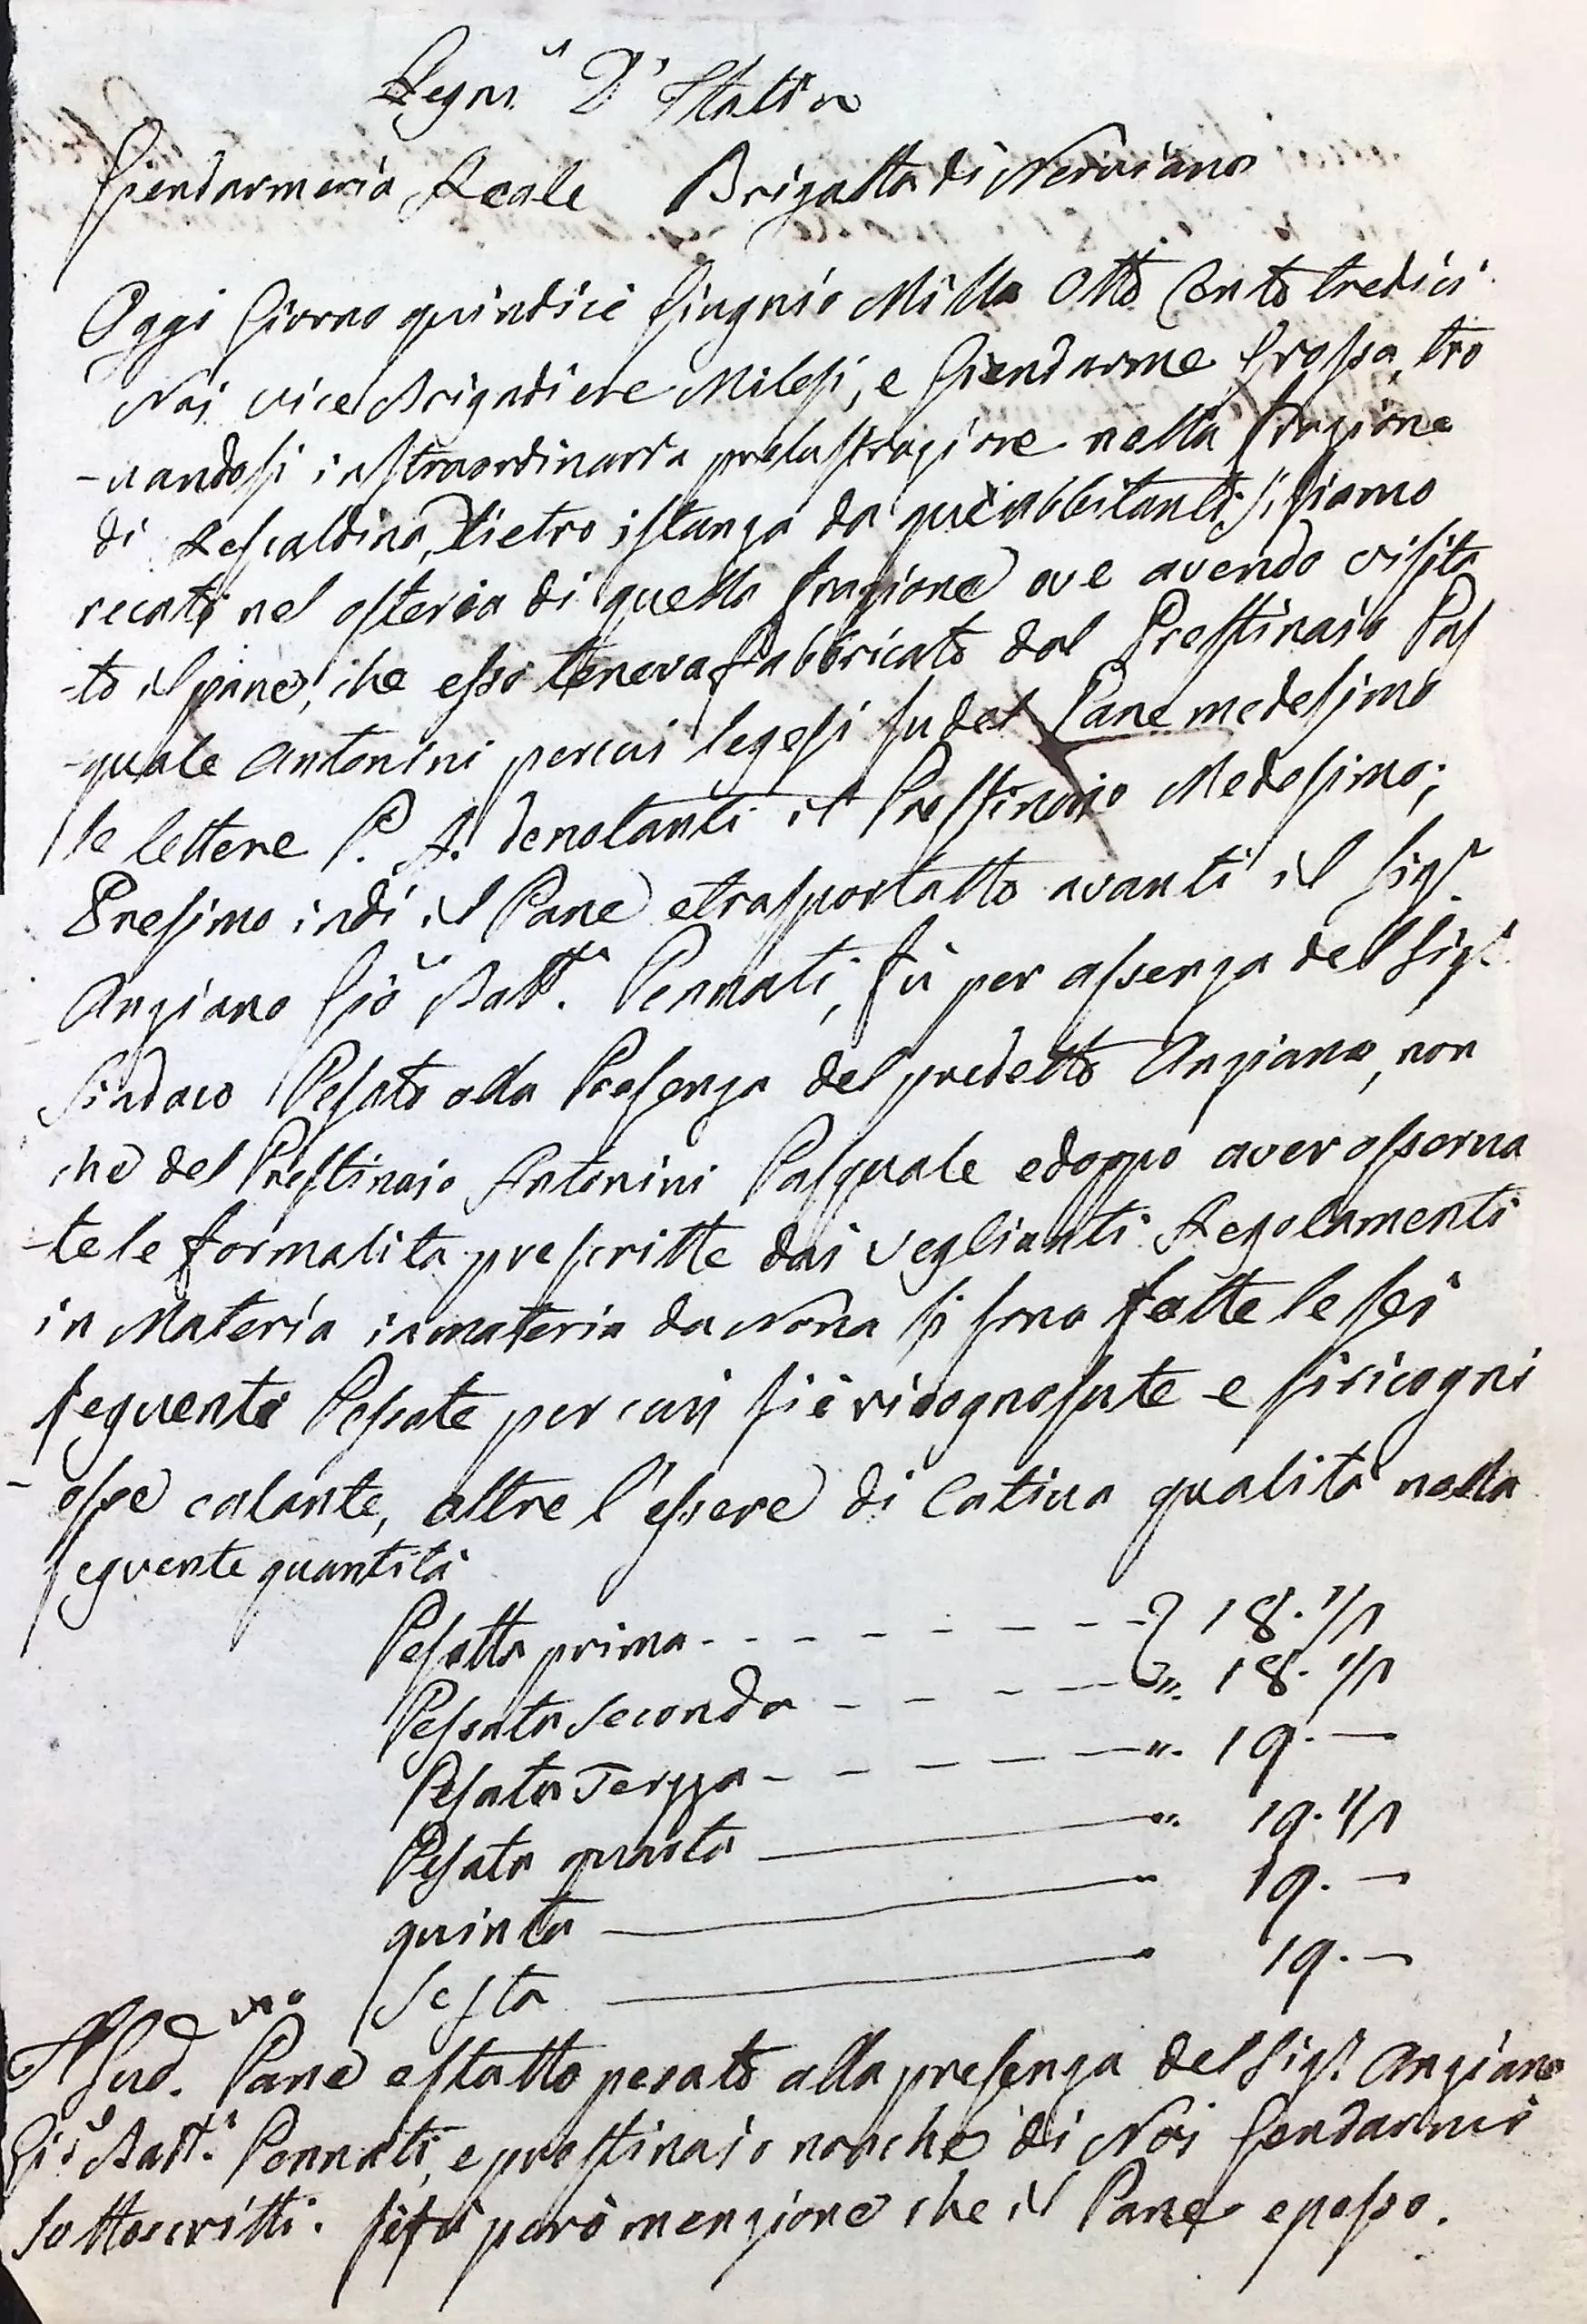 Regn.º D'Italia
Giendarmeria Reale Brigatta di Nerviano
Oggi Giorno quindici Giugnio Mille Otto Cento tredici
Noi vice Brigadiere Milesi, e Giendarme Grossa, tro
-vandosi in straordinaria prelustrazione nella frazione
di Rescaldina, Dietro istanza da que' abbitanti si siamo
recati nel osteria di quella frazione ove avendo visita
-to il pane, che esso teneva fabbricato dal Prestinaio Pas
-quale Antonini percui legesi su del Pane medesimo
le lettere P. A. denotanti il Prestinaio Medesimo;
Presimo indi il Pane e trasportatto avanti il Sigr.
Anziano Gio Batt.a Pennati, fu per assenza del Sigr.
Sindaco Pesato alla Presenza del predetto Anziano, non
che del Prestinaio Antonini Pasquale e doppo aver osserva
-te le formalita prescritte dai veglianti Regolamenti
in Materia in materia da Norma si sono fatte le sei
seguenti Pesate per cui si è ricognosute e si ricogni
- esse calante, oltre l'essere di Cativa qualità nella
seguente quantità
Pesatta prima - - - - - - - - 18. 1/2
Pessata Seconda - - - - " 18. 1/2
Pesata Terzza - - - - - " 19. —
Pesata quarta — " 19. 1/2
quinta — " 19. —
Sesta — " 19. —
Il Sud.mo Pane e statto pesato alla presenza del Sigr. Anziano
Gio Batt.a Pennati, e prestinaio nonche di Noi Gendarmi
sottoscritti. si fà però menzione che il Pane e posso.